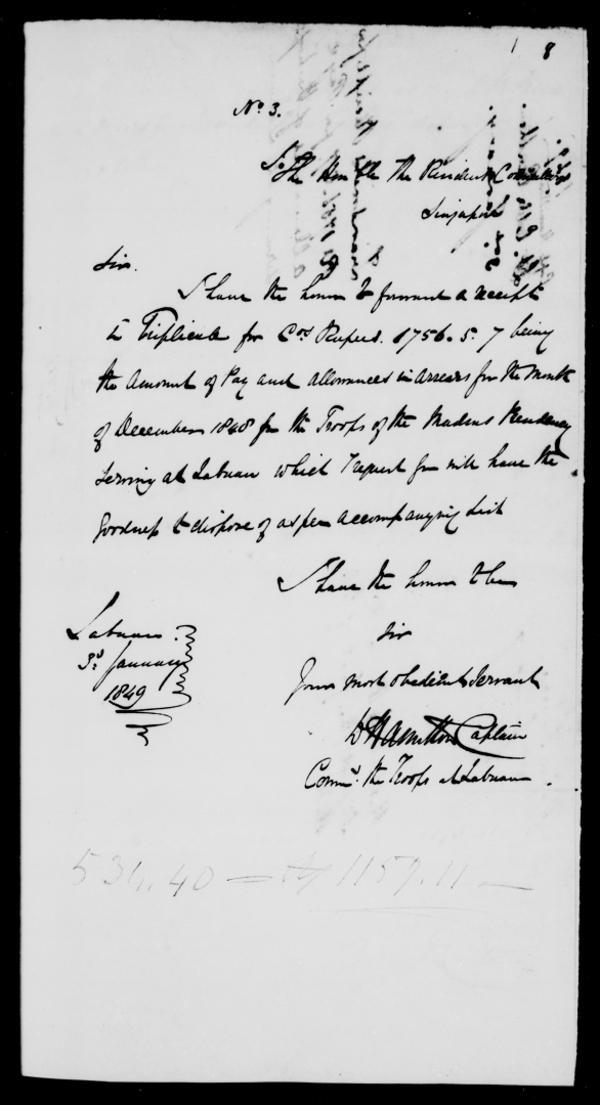 8
No. 3.
To The Honble The Resident Councillor
Singapore
Sir.
I have the honor to forward a receipt
in Triplicate for Cos Rupees. 1756. 5. 7 being
the Amount of Pay and allowances in arrears for the Month
of December 1848 for the Troops of the Madras Presidency
Serving at Labuan which I request you will have the
goodness to dispose of as per accompanying list
I have the honor to be
Sir
Your most obedient Servant
Hamilton Captain
Commg. the Troops at Labuan.
Labuan
3d January
1849
1159.11